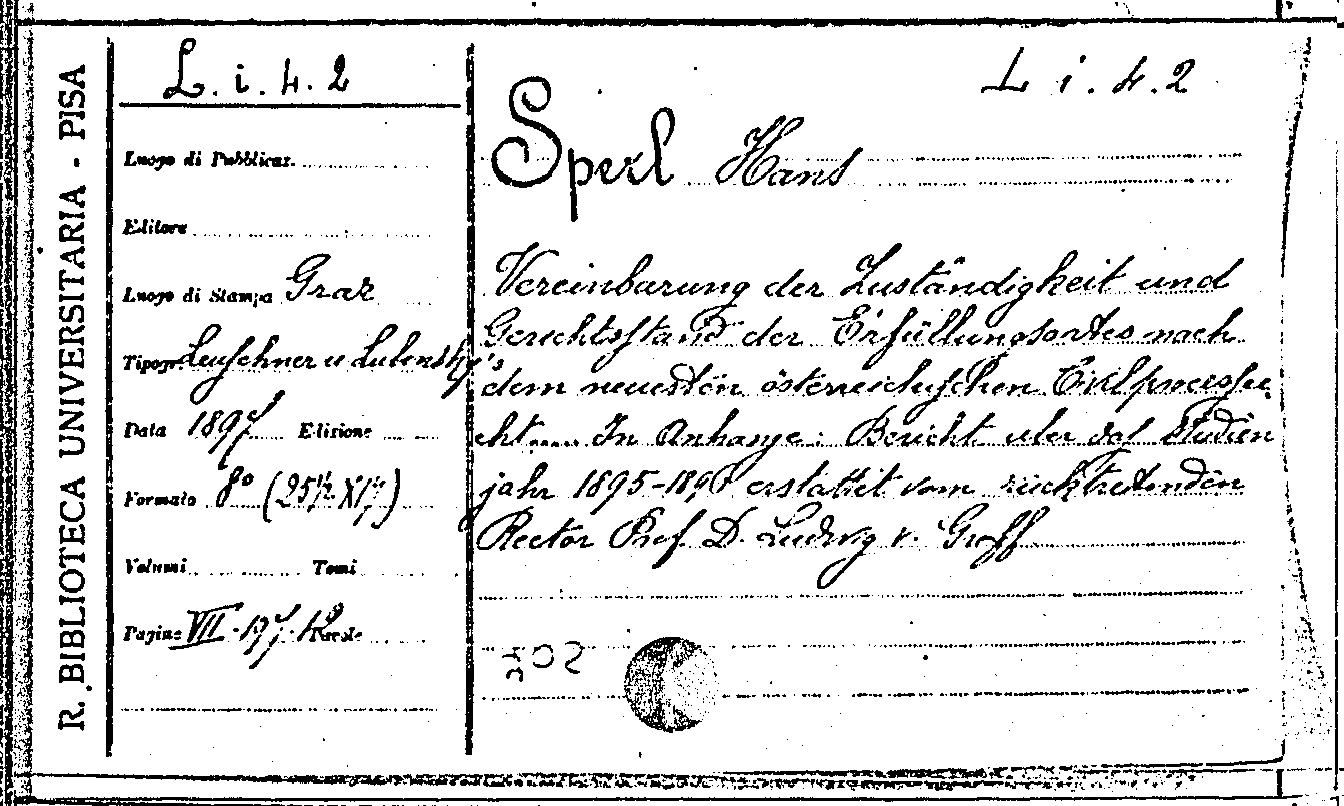 R. BIBLIOTECA UNIVERSITARIA - PISA
L. i. 4. 2
Luogo di Pubblicaz.
Editore
Luogo di Stampa Graz
Tipogr. Leuschner u Lubensky's
Data 1897 Edizione
Formato 8° (25½ X 17)
Volumi Tomi
Pagine VII-197. 12 Tavole
L i. 4. 2
Sperl Hans
Vereinbarung der Zuständigkeit und
Gerichtsstand der Erfüllungsortes nach
dem neuesten österreichischen Civilprocessre
cht.... In Anhange: Bericht uber das Studien
jahr 1895-1896 erstattet vom rücktretenden
Rector Prof. D. Ludwig v. Graff